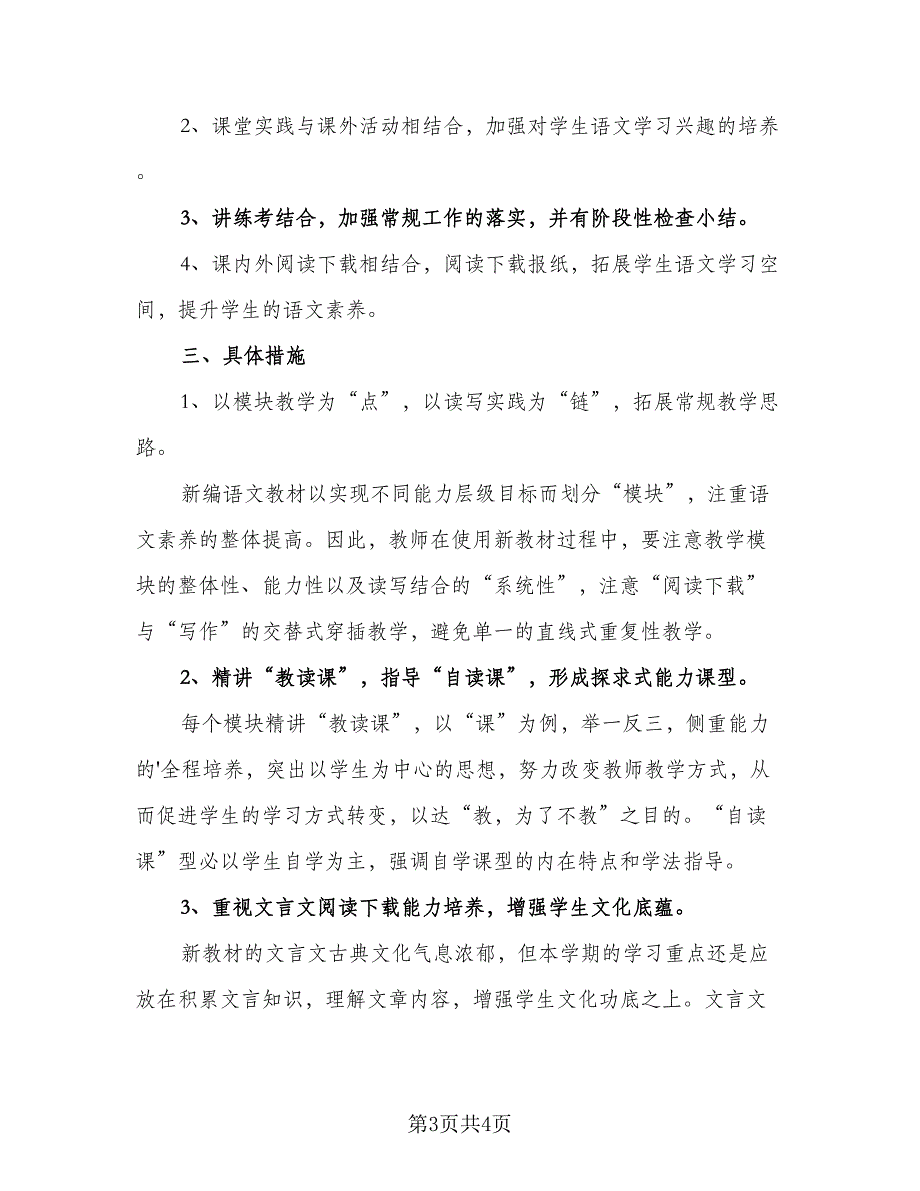 2、课堂实践与课外活动相结合，加强对学生语文学习兴趣的培养
。
3、讲练考结合，加强常规工作的落实，并有阶段性检查小结。
4、课内外阅读下载相结合，阅读下载报纸，拓展学生语文学习空
间，提升学生的语文素养。
三、具体措施
1、以模块教学为“点”，以读写实践为“链”，拓展常规教学思
路。
新编语文教材以实现不同能力层级目标而划分“模块”，注重语
文素养的整体提高。因此，教师在使用新教材过程中，要注意教学模
块的整体性、能力性以及读写结合的“系统性”，注意“阅读下载”
与“写作”的交替式穿插教学，避免单一的直线式重复性教学。
2、精讲“教读课”，指导“自读课”，形成探求式能力课型。
每个模块精讲“教读课”，以“课”为例，举一反三，侧重能力
的'全程培养，突出以学生为中心的思想，努力改变教师教学方式，从
而促进学生的学习方式转变，以达“教，为了不教”之目的。“自读
课”型必以学生自学为主，强调自学课型的内在特点和学法指导。
3、重视文言文阅读下载能力培养，增强学生文化底蕴。
新教材的文言文古典文化气息浓郁，但本学期的学习重点还是应
放在积累文言知识，理解文章内容，增强学生文化功底之上。文言文
第3页共4页